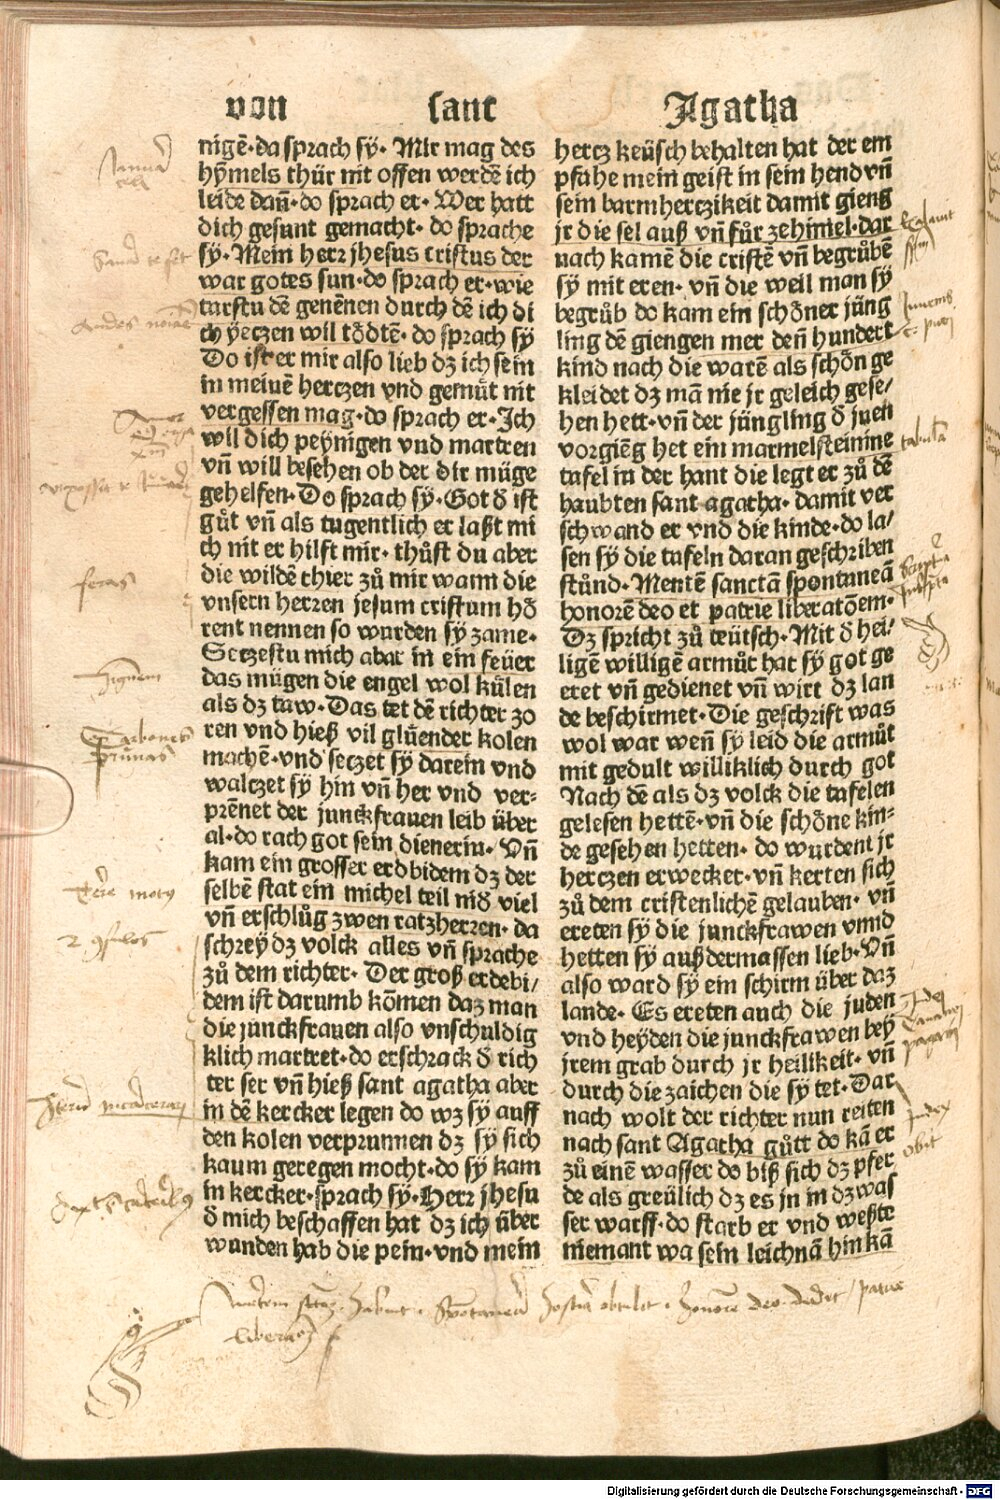 von sant Agatha
nigē·da sprach sÿ· Mir mag des
hÿmels thür nit offen werdē ich
leide dañ·do sprach er· Wer hatt
dich gesunt gemacht· do sprache
sÿ·Mein herr jhesus cristus der
war gotes sun·do sprach er·wie
tarstu dē genēnen durch dē ich di
ch ÿetzen wil tödtē·do sprach sÿ
Do ist er mir also lieb dz ich sein
in meinē hertzen vnd gemůt nit
vergessen mag·do sprach er·Ich
wil dich peÿnigen vnd martren
vñ will besehen ob der dir müge
gehelfen·Do sprach sÿ·Got d̄ ist
gůt vñ als tugentlich er laßt mi
ch nit er hilft mir· thůst du aber
die wildē thier zů mir wann die
vnsern herren jesum cristum hö
rent nennen so wurden sÿ zame·
Setzestu mich abar in ein feüer
das mügen die engel wol külen
als dz taw·Das tet dē richter zo
ren vnd hieß vil glüender kolen
machē·vnd setzet sÿ darein vnd
waltzet sÿ hin vñ her vnd ver⸗
prēnet der junckfrauen leib über
al·do rach got sein dienerin· Vñ
kam ein grosser erdbidem dz der
selbē stat ein michel teil nid̄ viel
vñ erschlůg zwen ratzherren· da
schreÿ dz volck alles vñ sprache
zů dem richter· Der groß erdebi/
dem ist darumb kōmen daz man
die junckfrauen also vnschuldig
klich martret·do erschrack d̄ rich
ter ser vñ hieß sant agatha aber
in dē kercker legen do wz sÿ auff
den kolen verprunnen dz sÿ sich
kaum geregen mocht·do sÿ kam
in kercker·sprach sÿ·Herr jhesu
d̄ mich beschaffen hat dz ich über
wunden hab die pein·vnd mein
hertz keüsch behalten hat der em
pfahe mein geist in sein hend vñ
sein barmhertzikeit damit gieng
jr die sel auß vñ für zehimel·dar
nach kamē die cristē vñ begrůbē
sÿ mit eren· vñ die weil man sÿ
begrůb do kam ein schöner jüng
ling dē giengen mer deñ hundert
kind nach die warē als schön ge
kleidet dz mā nie jr geleich gese/
hen hett·vñ der jüngling d̄ juen
vorgiēg het ein marmelsteinine
tafel in der hant die legt er zů dē
haubten sant agatha· damit ver
schwand er vnd die kinde·do la/
sen sÿ die tafeln daran geschriben
stůnd·Mentē sanctā spontaneā
honorē deo et patrie liberatōem·
Dz spricht zů teütsch·Mit d̄ hei⸗
ligē willigē armůt hat sÿ got ge
eret vñ gedienet vñ wirt dz lan
de beschirmet·Die geschrift was
wol war weñ sÿ leid die armůt
mit gedult williklich durch got
Nach dē als dz volck die tafelen
gelesen hettē·vñ die schöne kin⸗
de gesehen hetten· do wurdent jr
hertzen erwecket·vñ kerten sich
zů dem cristenlichē gelauben· vñ
ereten sÿ die junckfrawen vnnd
hetten sÿ außdermassen lieb·Vñ
also ward sÿ ein schirm über daz
lande· Es ereten auch die juden
vnd heÿden die junckfrawen beÿ
jrem grab durch jr heilikeit· vñ
durch die zaichen die sÿ tet·Dar
nach wolt der richter nun reiten
nach sant Agatha gůtt do kā er
zů einē wasser do biß sich dz pfer
de als greülich dz es jn in dz was
ser warff·do starb er vnd weßte
niemant wa sein leichnā hin kā
feras
Carbones
prunas
tabula
Judex
obijt
Digitalisierung gefördert durch die Deutsche Forschungsgemeinschaft - DFG